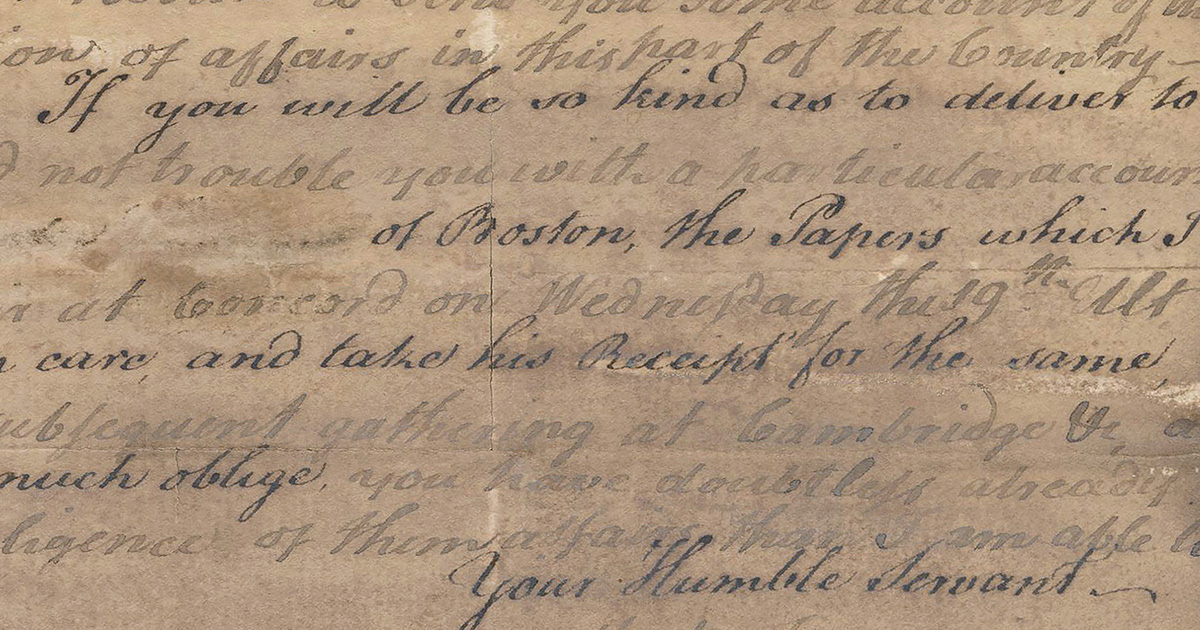 to send you some account of
ion of affairs in this part of the Country—
If you will be so kind as to deliver to
not trouble you with a particular accoun
of Boston, the Papers which I
at Concord on Wednesday the 19th Ult
care, and take his Receipt for the same,
ubsequent gathering at Cambridge &c,
much oblige, you have doubtless already
ligence of them affairs than I am able t
Your Humble Servant